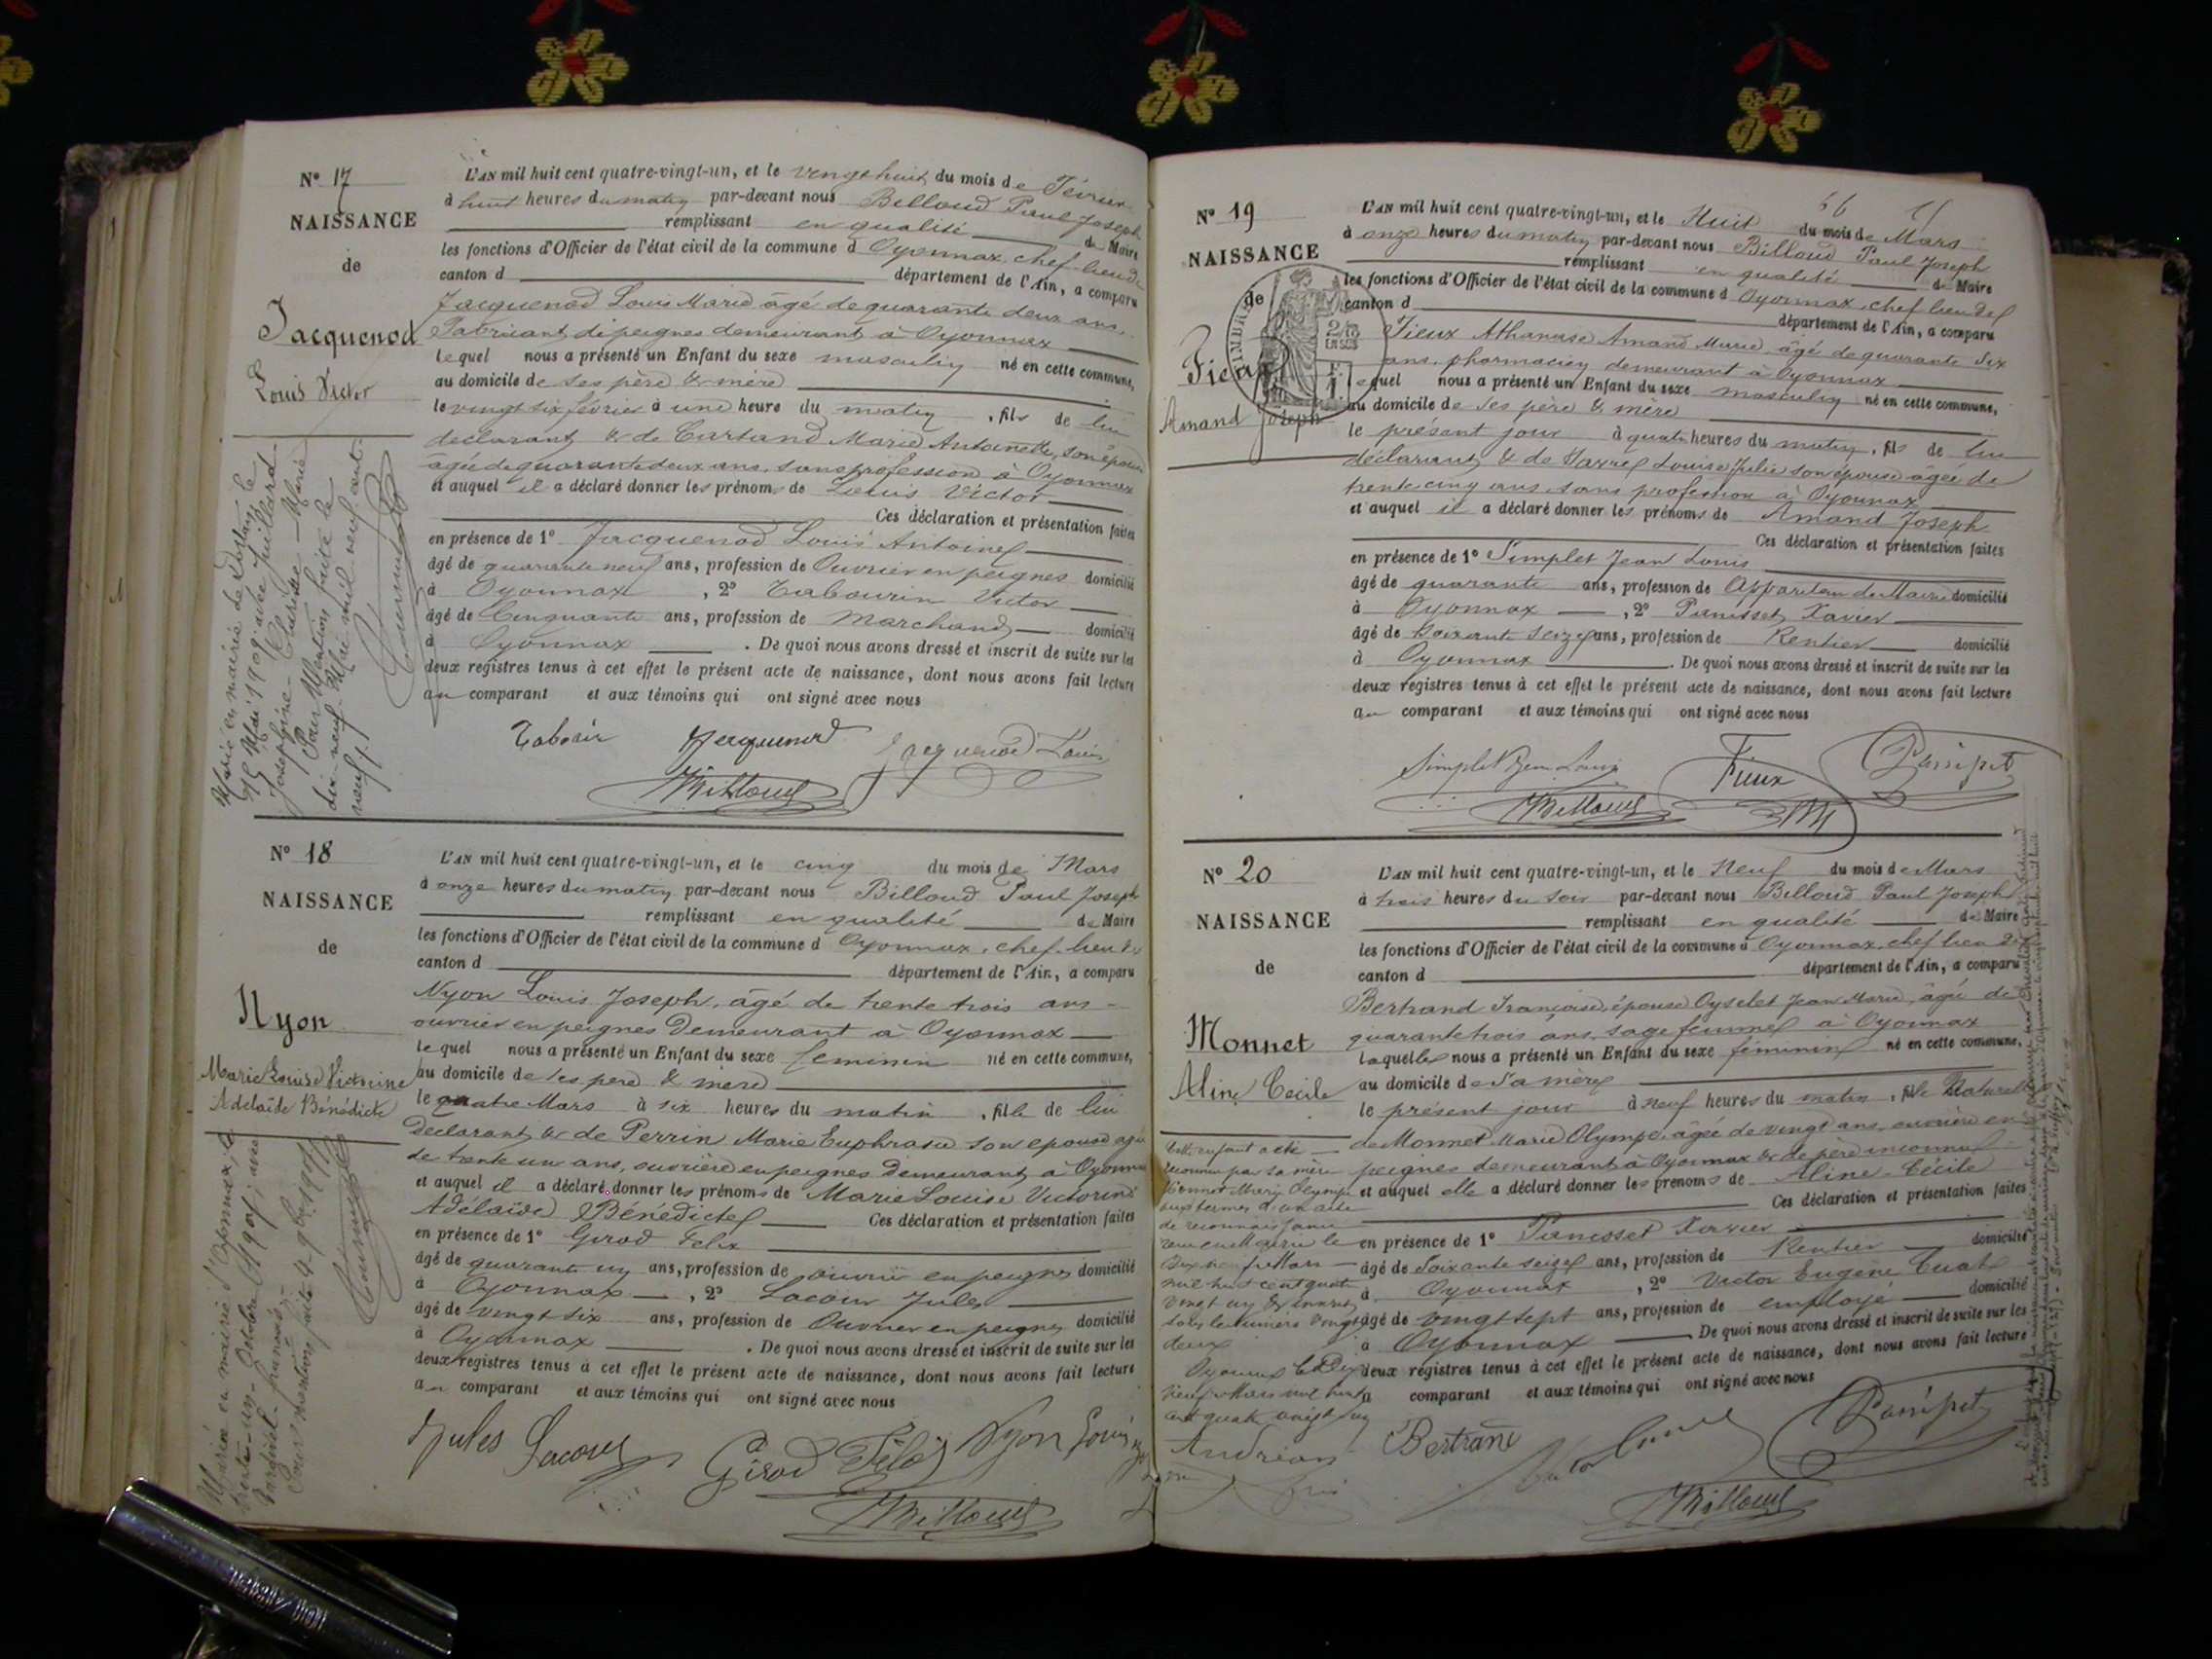 N° 17
NAISSANCE
de
Jacquenod
Louis Victor
L'AN mil huit cent quatre-vingt-un, et le vingt huit du mois de Février
à huit heures du matin par-devant nous Billoud Paul Joseph
remplissant en qualité de Maire
les fonctions d'Officier de l'état civil de la commune d Oyonnax, chef-lieu de
canton d département de l'Ain, a comparu
Jacquenod Louis Marie âgé de quarante deux ans,
Fabricant de peignes demeurant à Oyonnax
lequel nous a présenté un Enfant du sexe masculin né en cette commune,
au domicile de ses père & mère
le vingt six février à une heure du matin, fils de lui
déclarant & de Cartand Marie Antoinette, son épouse
âgée de quarante deux ans, sans profession à Oyonnax
et auquel il a déclaré donner les prénoms de Louis Victor
Ces déclaration et présentation faites
en présence de 1° Jacquenod Louis Antoine
âgé de quarante neuf ans, profession de Ouvrier en peignes domicilié
à Oyonnax, 2° Tabourin Victor
âgé de Cinquante ans, profession de Marchand domicilié
à Oyonnax. De quoi nous avons dressé et inscrit de suite sur les
deux registres tenus à cet effet le présent acte de naissance, dont nous avons fait lecture
au comparant et aux témoins qui ont signé avec nous
Jacquenod Jacquenod Louis
Billoud
Marié en mairie de le
Mai 1909 avec Juillard
Joséphine Marie
Pour Mention faite le
dix neuf Mai mil neuf cent
neuf
N° 18
NAISSANCE
de
Nyon
Marie Louise Victorine
Adelaïde Bénédicte
L'AN mil huit cent quatre-vingt-un, et le cinq du mois de Mars
à onze heures du matin par-devant nous Billoud Paul Joseph
remplissant en qualité de Maire
les fonctions d'Officier de l'état civil de la commune d Oyonnax, chef-lieu de
canton d département de l'Ain, a comparu
Nyon Louis Joseph, âgé de trente trois ans
ouvrier en peignes Demeurant à Oyonnax
lequel nous a présenté un Enfant du sexe feminin né en cette commune,
au domicile de ses père & mère
le quatre Mars à six heures du matin, fille de lui
Déclarant & de Perrin Marie Euphrasie son épouse agée
de trente un ans, ouvrière en peignes demeurant à Oyonnax
et auquel il a déclaré donner les prénoms de Marie Louise Victorine
Adélaïde Bénédicte Ces déclaration et présentation faites
en présence de 1° Girod Felix
âgé de quarante un ans, profession de ouvrier en peignes domicilié
à Oyonnax, 2° Lacour Jules
âgé de vingt six ans, profession de Ouvrier en peignes domicilié
à Oyonnax. De quoi nous avons dressé et inscrit de suite sur les
deux registres tenus à cet effet le présent acte de naissance, dont nous avons fait lecture
au comparant et aux témoins qui ont signé avec nous
Jules Lacour Girod Félix Nyon Louis
Billoud
Mariée en mairie d'Oyonnax, le
trente-un Octobre 1901 avec
N° 19
NAISSANCE
de
Fieux
Amand Joseph
L'AN mil huit cent quatre-vingt-un, et le Huit du mois de Mars
à onze heures du matin par-devant nous Billoud Paul Joseph
remplissant en qualité de Maire
les fonctions d'Officier de l'état civil de la commune d Oyonnax, chef lieu de
canton d département de l'Ain, a comparu
Fieux Athanase Amand Marie, âgé de quarante six
ans, pharmacien demeurant à Oyonnax
lequel nous a présenté un Enfant du sexe masculin né en cette commune,
au domicile de ses père & mère
le présent jour à quatre heures du matin, fils de lui
déclarant & de Louise Julie son épouse âgée de
trente cinq ans, sans profession à Oyonnax
et auquel il a déclaré donner les prénoms de Amand Joseph
Ces déclaration et présentation faites
en présence de 1° Simplet Jean Louis
âgé de quarante ans, profession de Appariteur de Mairie domicilié
à Oyonnax, 2° Panisset Xavier
âgé de Soixante seize ans, profession de Rentier domicilié
à Oyonnax. De quoi nous avons dressé et inscrit de suite sur les
deux registres tenus à cet effet le présent acte de naissance, dont nous avons fait lecture
au comparant et aux témoins qui ont signé avec nous
Simplet Jean Louis Fieux Panisset
Billoud
N° 20
NAISSANCE
de
Monnet
Aline Cécile
L'AN mil huit cent quatre-vingt-un, et le Neuf du mois de Mars
à trois heures du soir par-devant nous Billoud Paul Joseph
remplissant en qualité de Maire
les fonctions d'Officier de l'état civil de la commune d Oyonnax, chef lieu de
canton d département de l'Ain, a comparu
Bertrand Françoise, épouse Oyselet Jean Marie, âgée de
quarante trois ans, sage femme à Oyonnax
laquelle nous a présenté un Enfant du sexe féminin né en cette commune,
au domicile de Sa mère
le présent jour à neuf heures du matin, fille Naturelle
de Monnet Marie Olympe, âgée de vingt ans, ouvrière en
peignes demeurant à Oyonnax & de père inconnu
et auquel elle a déclaré donner les prénoms de Aline Cécile
Ces déclaration et présentation faites
en présence de 1° Panisset Xavier
âgé de Soixante seize ans, profession de Rentier domicilié
à Oyonnax, 2° Victor Eugène Cuat
âgé de vingt sept ans, profession de employé domicilié
à Oyonnax. De quoi nous avons dressé et inscrit de suite sur les
deux registres tenus à cet effet le présent acte de naissance, dont nous avons fait lecture
à comparant et aux témoins qui ont signé avec nous
Bertrand Panisset
Billoud
Cette enfant a été
reconnue par sa mère
Monnet Marie Olympe
aux termes d'un acte
de reconnaissance
reçu en Mairie le
dix neuf Mars
mil huit cent quatre
vingt un & inscrit
sous le numéro vingt
deux
Oyonnax le Dix
neuf Mars mil huit
cent quatre vingt un